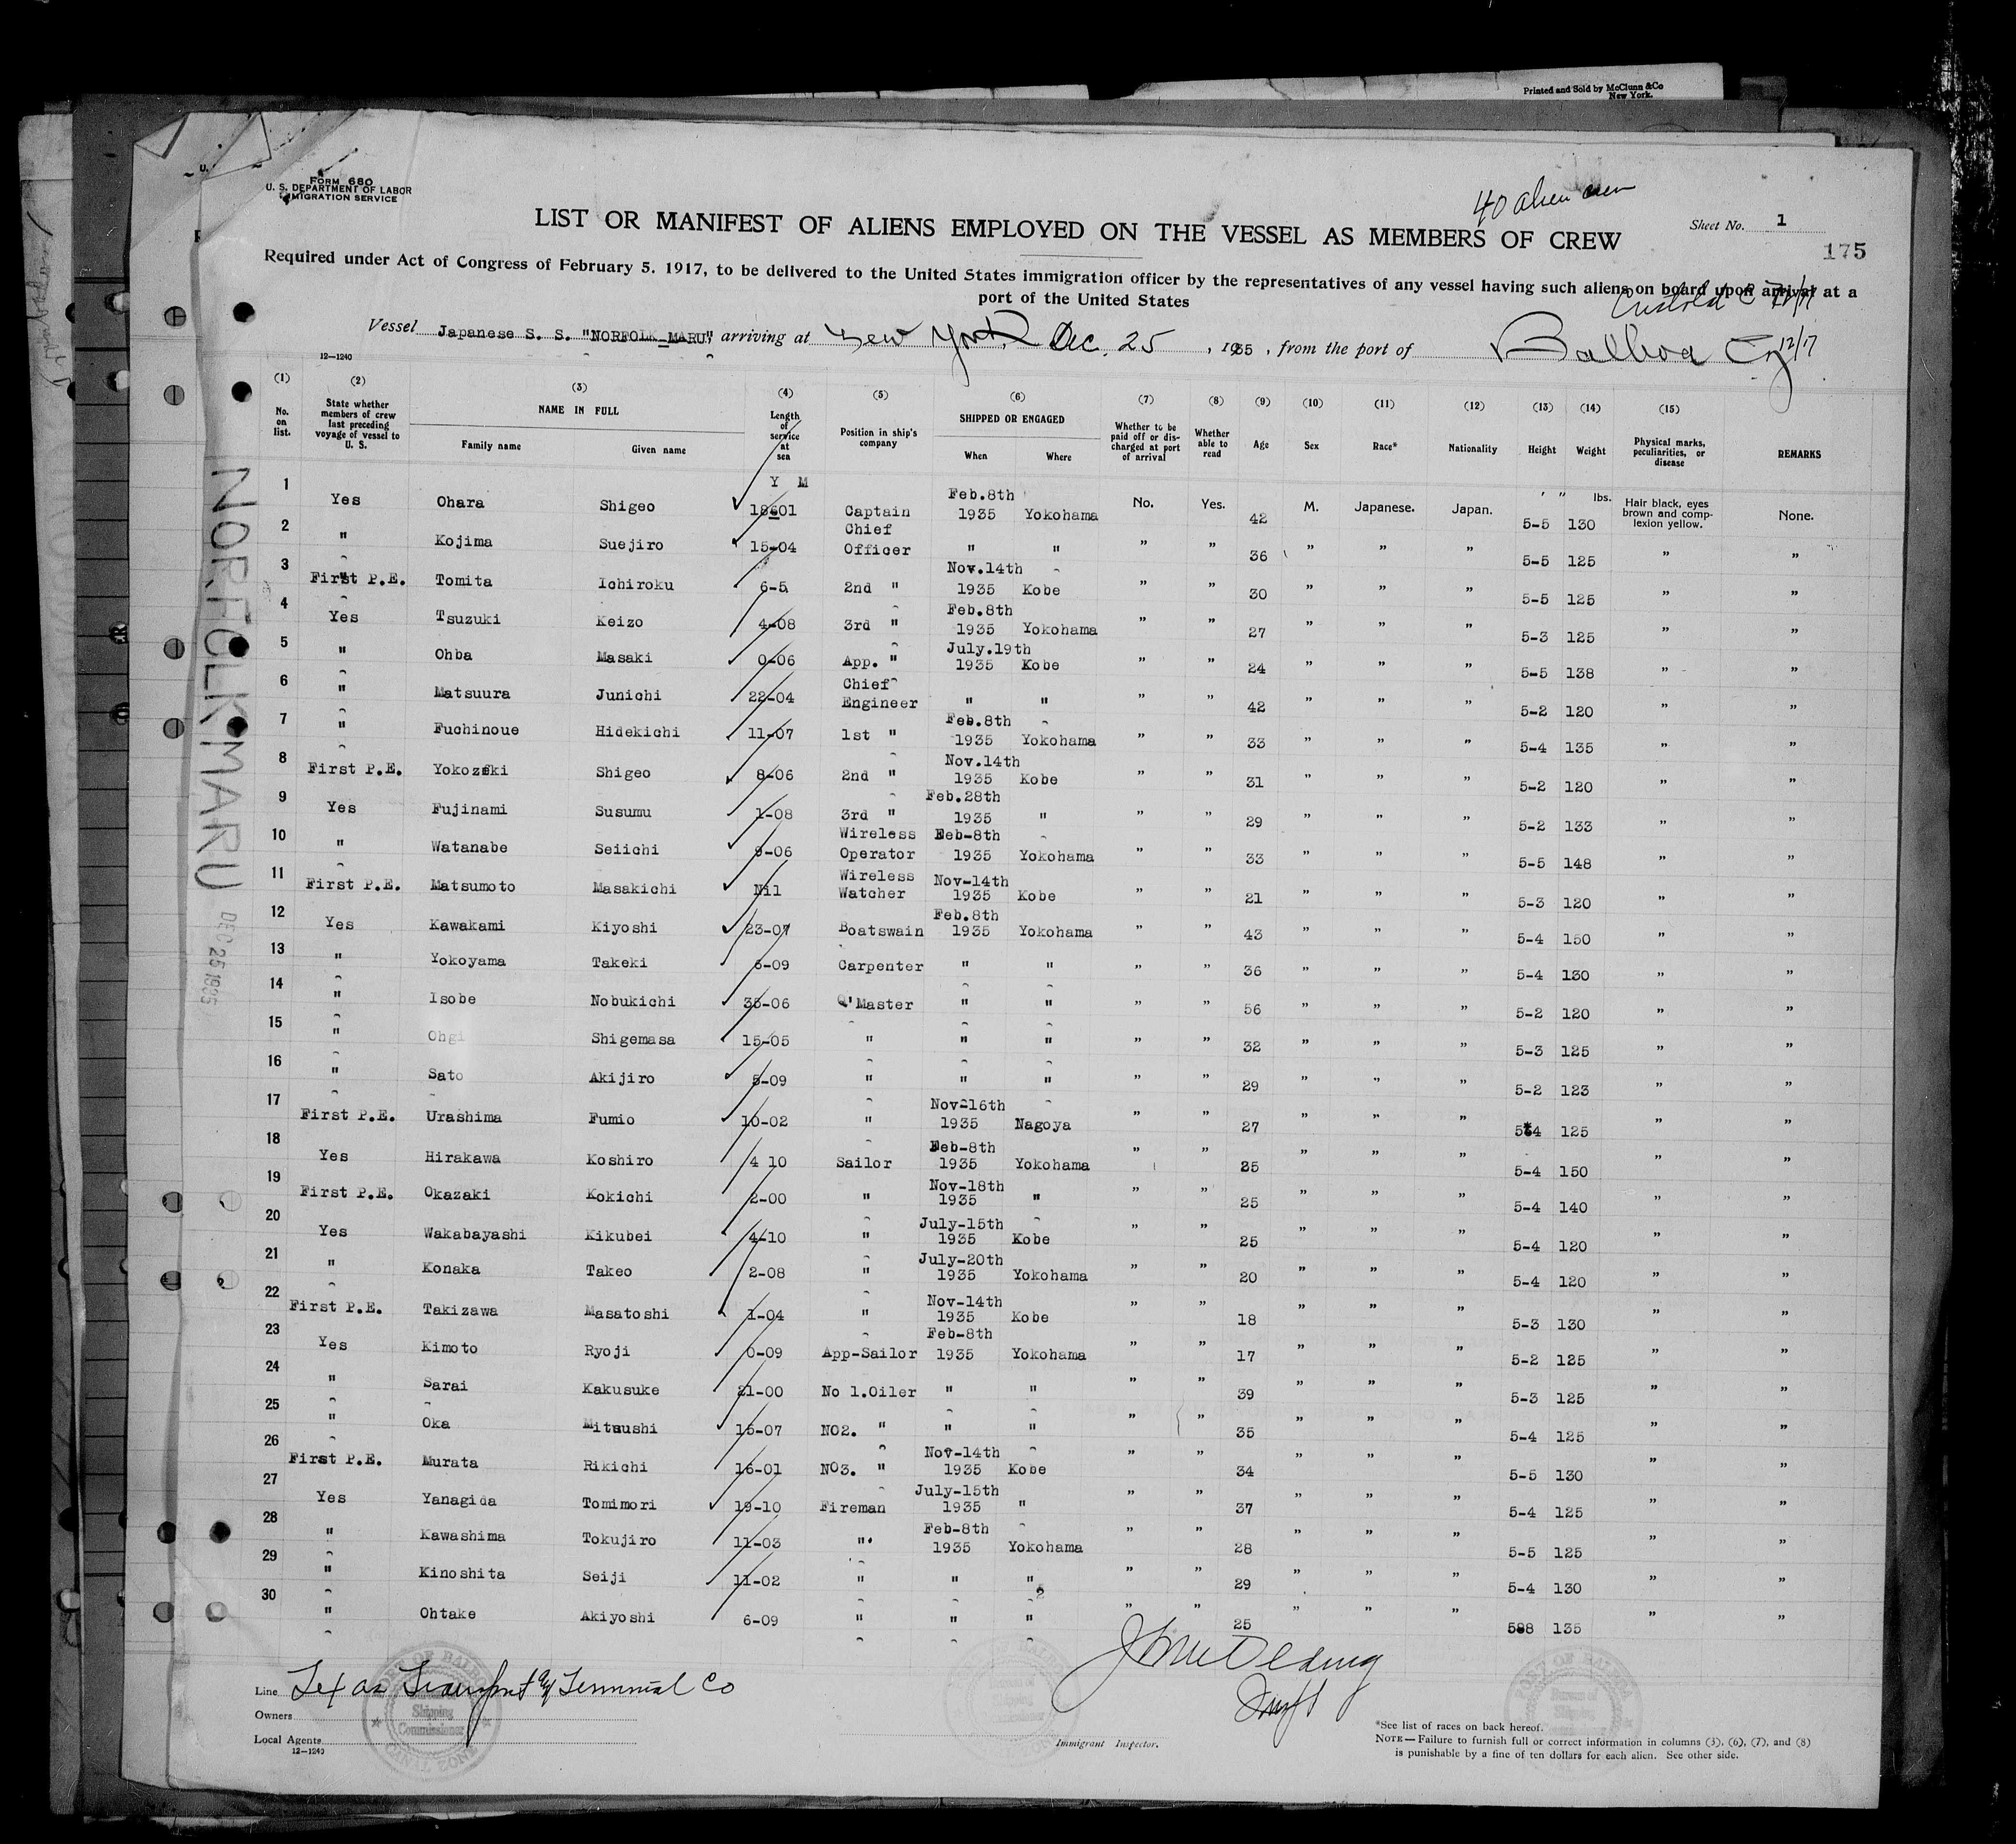 Printed and Sold by McClunn &Co
New York.
FORM 680
U. S. DEPARTMENT OF LABOR
IMMIGRATION SERVICE
40 alien crew
LIST OR MANIFEST OF ALIENS EMPLOYED ON THE VESSEL AS MEMBERS OF CREW
Sheet No. 1
175
Required under Act of Congress of February 5. 1917, to be delivered to the United States immigration officer by the representatives of any vessel having such aliens on board upon arrival at a
port of the United States
Vessel Japanese S. S. "NORFOLK MARU" arriving at New York, Dec. 25, 1935, from the port of Balboa CZ 12/17
12—1240
(1) (2) (3) (4) (5) (6) (7) (8) (9) (10) (11) (12) (13) (14) (15)
No. on list. State whether members of crew last preceding voyage of vessel to U. S. NAME IN FULL Family name Given name Length of service at sea Position in ship's company SHIPPED OR ENGAGED When Where Whether to be paid off or discharged at port of arrival Whether able to read Age Sex Race* Nationality Height Weight Physical marks, peculiarities, or disease REMARKS
Y M ' " lbs.
1 Yes Ohara Shigeo 18601 Captain Feb.8th 1935 Yokohama No. Yes. 42 M. Japanese. Japan. 5-5 130 Hair black, eyes brown and comp-lexion yellow. None.
2 " Kojima Suejiro 15-04 Chief Officer " " " " 36 " " " 5-5 125 " "
3 First P.E. Tomita Ichiroku 6-5 2nd " Nov.14th 1935 Kobe " " 30 " " " 5-5 125 " "
4 Yes Tsuzuki Keizo 4-08 3rd " Feb.8th 1935 Yokohama " " 27 " " " 5-3 125 " "
5 " Ohba Masaki 0-06 App. " July.19th 1935 Kobe " " 24 " " " 5-5 138 " "
6 " Matsuura Junichi 22-04 Chief Engineer " " " " 42 " " " 5-2 120 " "
7 " Fuchinoue Hidekichi 11-07 1st " Feb.8th 1935 Yokohama " " 33 " " " 5-4 135 " "
8 First P.E. Yokozeki Shigeo 8-06 2nd " Nov.14th 1935 Kobe " " 31 " " " 5-2 120 " "
9 Yes Fujinami Susumu 1-08 3rd " Feb.28th 1935 " " " 29 " " " 5-2 133 " "
10 " Watanabe Seiichi 9-06 Wireless Operator Feb-8th 1935 Yokohama " " 33 " " " 5-5 148 " "
11 First P.E. Matsumoto Masakichi Nil Wireless Watcher Nov-14th 1935 Kobe " " 21 " " " 5-3 120 " "
12 Yes Kawakami Kiyoshi 23-07 Boatswain Feb.8th 1935 Yokohama " " 43 " " " 5-4 150 " "
13 " Yokoyama Takeki 6-09 Carpenter " " " " 36 " " " 5-4 130 " "
14 " Isobe Nobukichi 35-06 Q'Master " " " " 56 " " " 5-2 120 " "
15 " Ohgi Shigemasa 15-05 " " " " " 32 " " " 5-3 125 " "
16 " Sato Akijiro 5-09 " " " " " 29 " " " 5-2 123 " "
17 First P.E. Urashima Fumio 10-02 " Nov-16th 1935 Nagoya " " 27 " " " 5-4 125 " "
18 Yes Hirakawa Koshiro 4 10 Sailor Feb-8th 1935 Yokohama " " 25 " " " 5-4 150 " "
19 First P.E. Okazaki Kokichi 2-00 " Nov-18th 1935 " " " 25 " " " 5-4 140 " "
20 Yes Wakabayashi Kikubei 4-10 " July-15th 1935 Kobe " " 25 " " " 5-4 120 " "
21 " Konaka Takeo 2-08 " July-20th 1935 Yokohama " " 20 " " " 5-4 120 " "
22 First P.E. Takizawa Masatoshi 1-04 " Nov-14th 1935 Kobe " " 18 " " " 5-3 130 " "
23 Yes Kimoto Ryoji 0-09 App-Sailor Feb-8th 1935 Yokohama " " 17 " " " 5-2 125 " "
24 " Sarai Kakusuke 21-00 No 1.Oiler " " " " 39 " " " 5-3 125 " "
25 " Oka Mitsushi 15-07 NO2. " " " " " 35 " " " 5-4 125 " "
26 First P.E. Murata Rikichi 16-01 NO3. " Nov-14th 1935 Kobe " " 34 " " " 5-5 130 " "
27 Yes Yanagida Tomimori 19-10 Fireman July-15th 1935 " " " 37 " " " 5-4 125 " "
28 " Kawashima Tokujiro 11-03 " Feb-8th 1935 Yokohama " " 28 " " " 5-5 125 " "
29 " Kinoshita Seiji 11-02 " " " " " 29 " " " 5-4 130 " "
30 " Ohtake Akiyoshi 6-09 " " " " " 25 " " " 588 135 " "
NORFOLK MARU
DEC 25 1935
Line Texas Transport & Terminal Co
Owners
Local Agents
12—1240
PORT OF BALBOA
Shipping
Commissioner
CANAL ZONE
Immigrant Inspector.
*See list of races on back hereof.
NOTE—Failure to furnish full or correct information in columns (3), (6), (7), and (8)
is punishable by a fine of ten dollars for each alien. See other side.